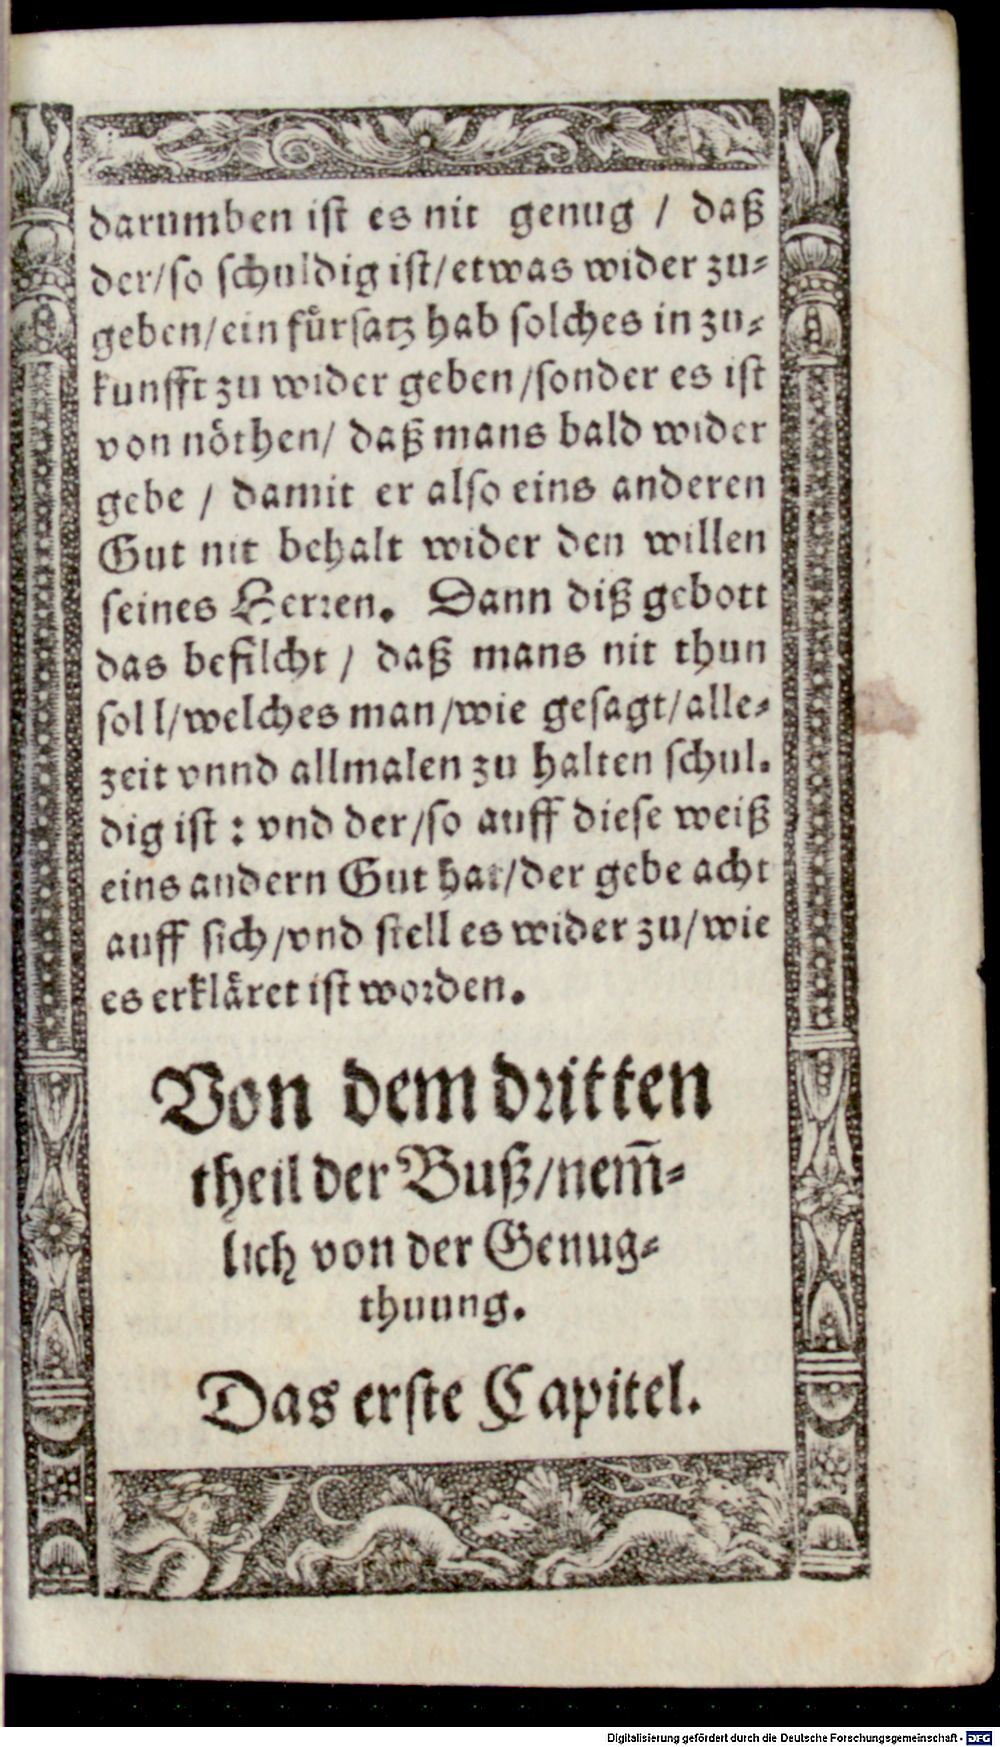 darumben ist es nit genug / daß
der/so schuldig ist/etwas wider zu⸗
geben/ein fuͤrsatz hab solches in zu⸗
kunfft zu wider geben/sonder es ist
von nöthen/ daß mans bald wider
gebe / damit er also eins anderen
Gut nit behalt wider den willen
seines Herren. Dann diß gebott
das befilcht / daß mans nit thun
soll/welches man/wie gesagt/alle⸗
zeit vnnd allmalen zu halten schul.
dig ist : vnd der/so auff diese weiß
eins andern Gut hat/der gebe acht
auff sich/vnd stell es wider zu/wie
es erkläret ist worden.
Von dem dritten
theil der Buß/nem̃⸗
lich von der Genug⸗
thuung.
Das erste Capitel.
Digitalisierung gefördert durch die Deutsche Forschungsgemeinschaft - DFG